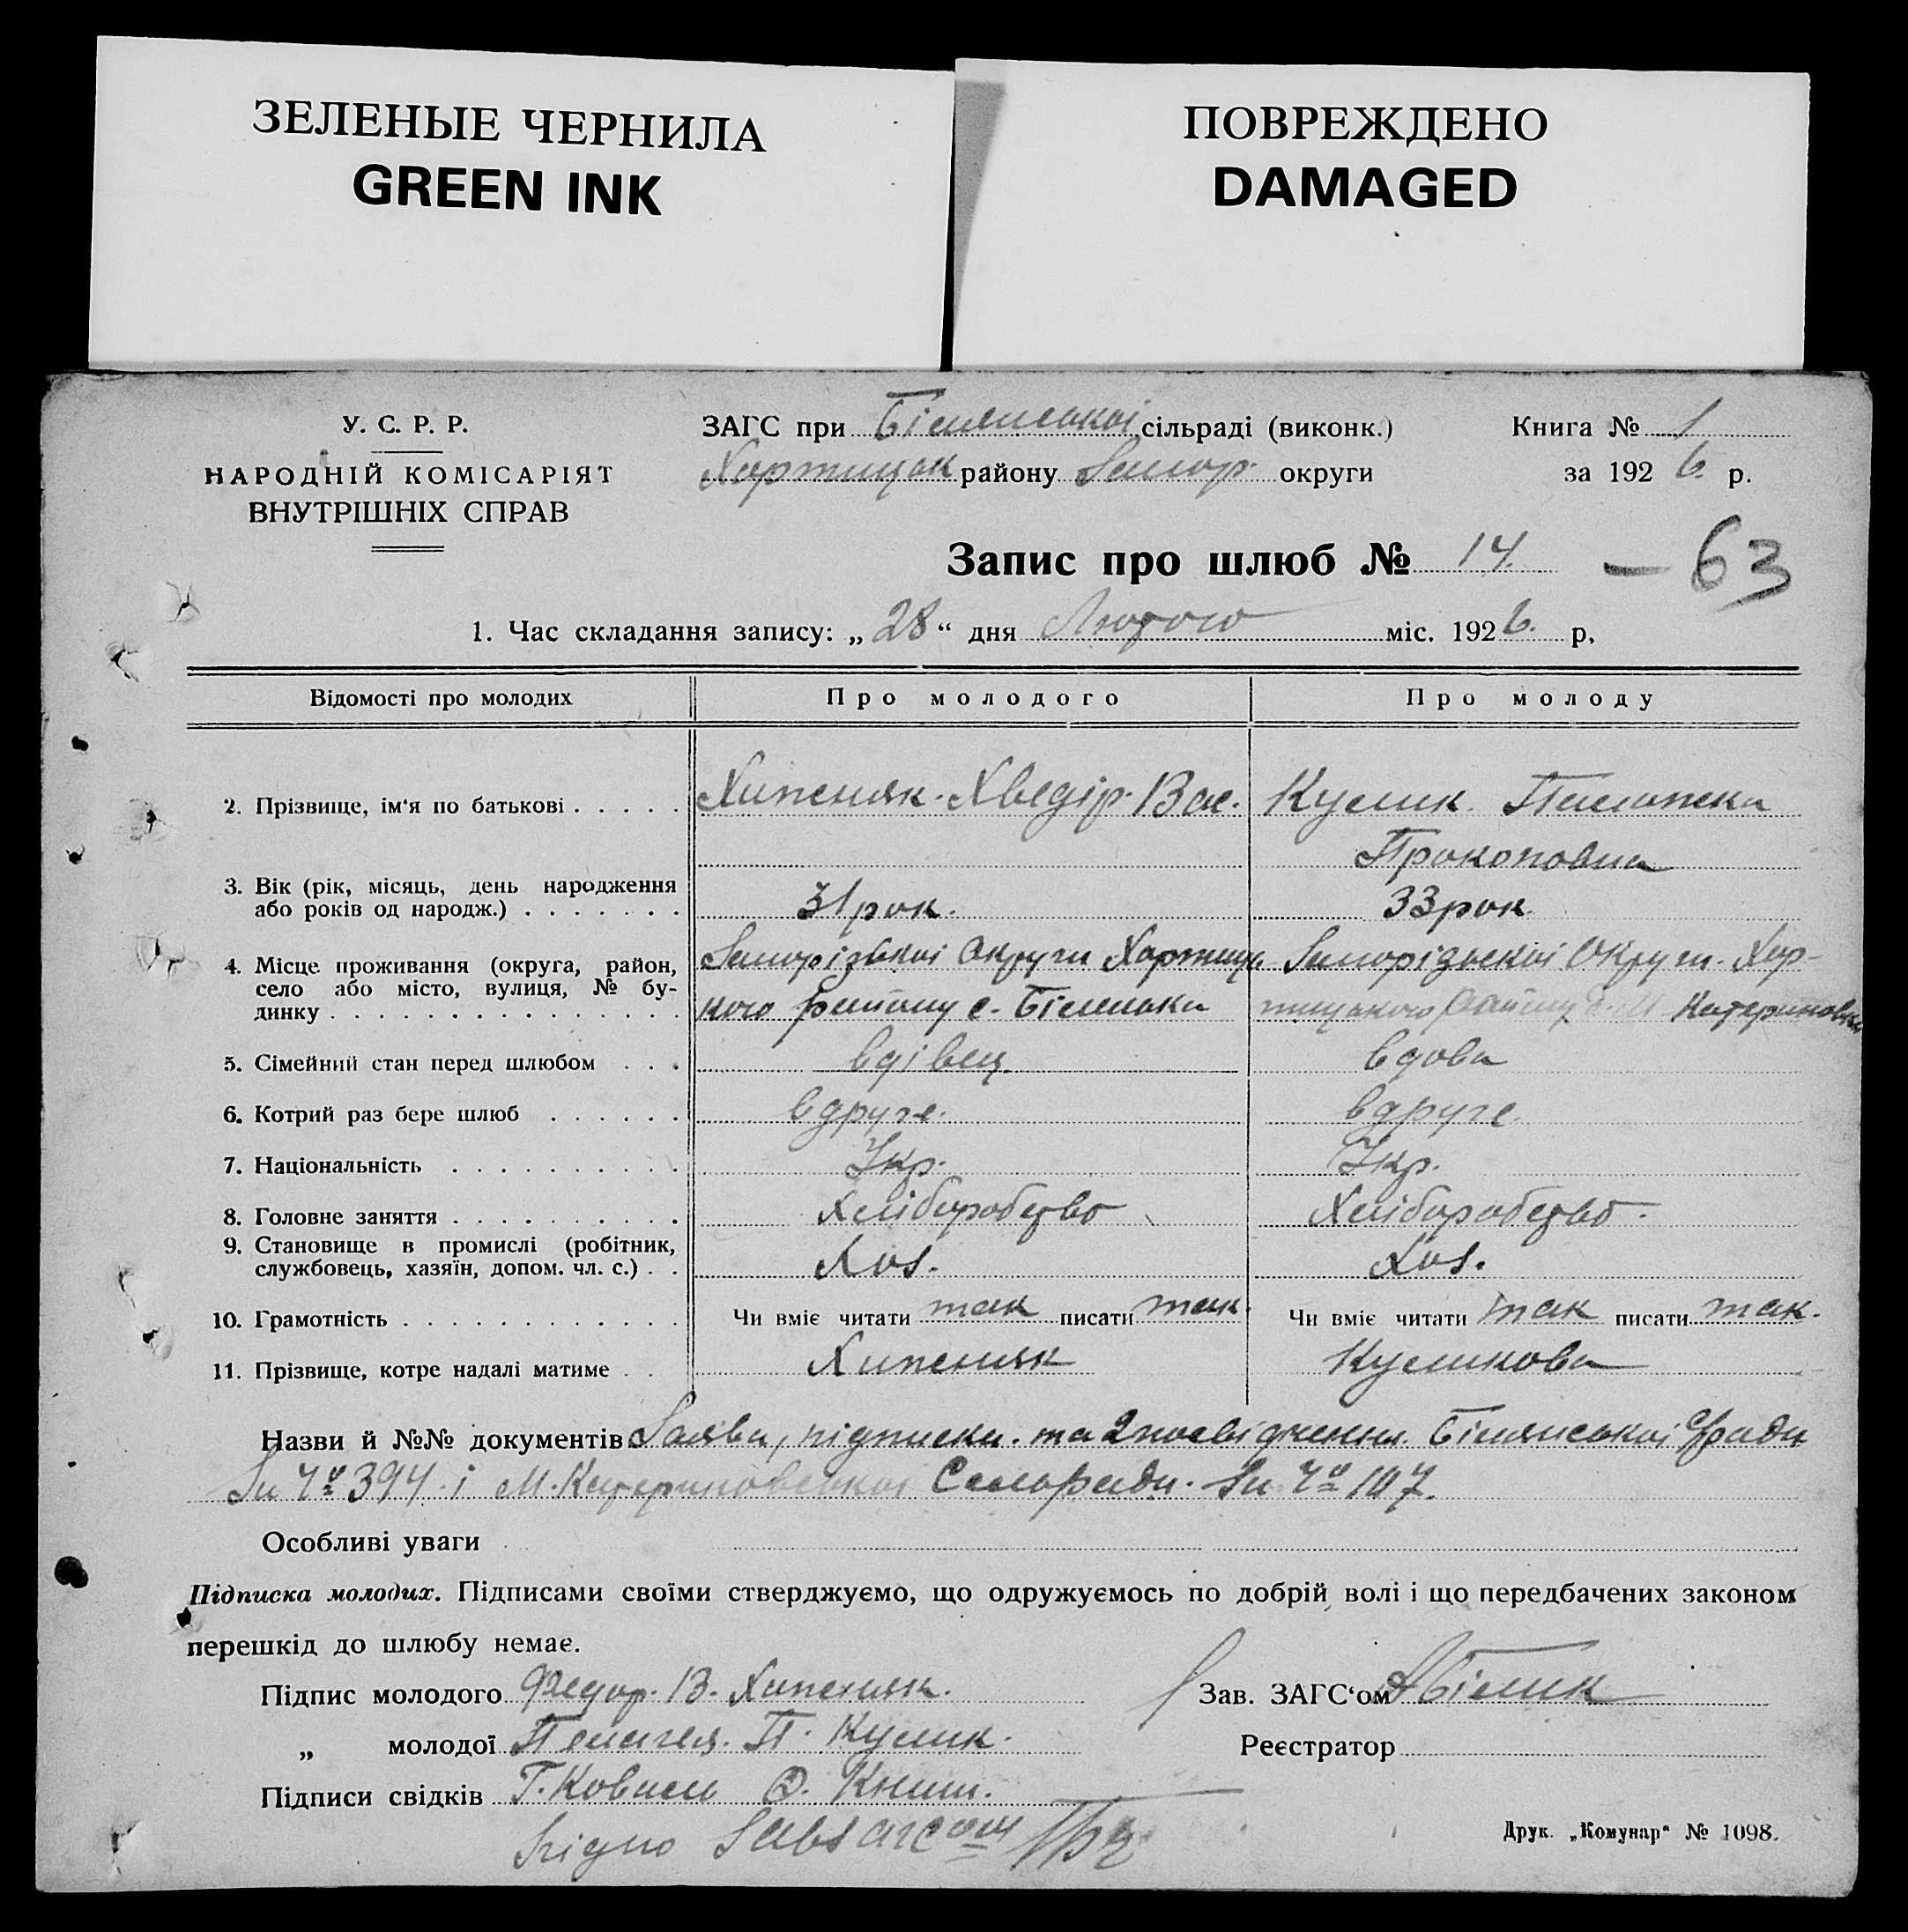 ЗЕЛЕНЫЕ ЧЕРНИЛА
GREEN INK
ПОВРЕЖДЕНО
DAMAGED
У. С. Р. Р.
НАРОДНІЙ КОМІСАРІЯТ
ВНУТРІШНІХ СПРАВ
ЗАГС при Білянської сільраді (виконк.)
Хортицьк району Запор. округи
Книга № 1
за 1926 р.
Запис про шлюб № 14. – 63
1. Час складання запису: „28“ дня Лютого міс. 1926. р.
Відомості про молодих Про молодого Про молоду
2. Прізвище, ім'я по батькові Хипеняк. Хведір. Вас. Кулик. Палажка
Прокоповна
3. Вік (рік, місяць, день народження
або років од народж.) 31 рок. 33 рок
4. Місце проживання (округа, район, Запорізької Округи Хортиць Запорізьської Округи. Хор-
село або місто, вулиця, № бу-
динку кого району с. Біленька тицького Району с. М Катериновки
5. Сімейний стан перед шлюбом вдівец. вдова
6. Котрий раз бере шлюб вдруге. вдруге.
7. Національність Укр. Укр.
8. Головне заняття Хліборобство Хліборобство.
9. Становище в промислі (робітник,
службовець, хазяїн, допом. чл. с.) Хоз. Хоз.
10. Грамотність Чи вміє читати так писати так. Чи вміє читати так писати так.
11. Прізвище, котре надалі матиме Хипеняк Куликова
Назви й №№ документів Заява, підписка. та 2 посвідчення. Білянської С/ради
За № 394 і М. Катериновської Сельради. За № 107.
Особливі уваги
Підписка молодих. Підписами своїми стверджуємо, що одружуємось по добрій волі і що передбачених законом
перешкід до шлюбу немає.
Підпис молодого Федор. В. Хипеняк.
Зав. ЗАГС'ом Білик
„ молодої Пелагея. П. Кулик.
Реєстратор
Підписи свідків Г. Коваль Ф. Книш.
Друк. „Комунар“ № 1098.